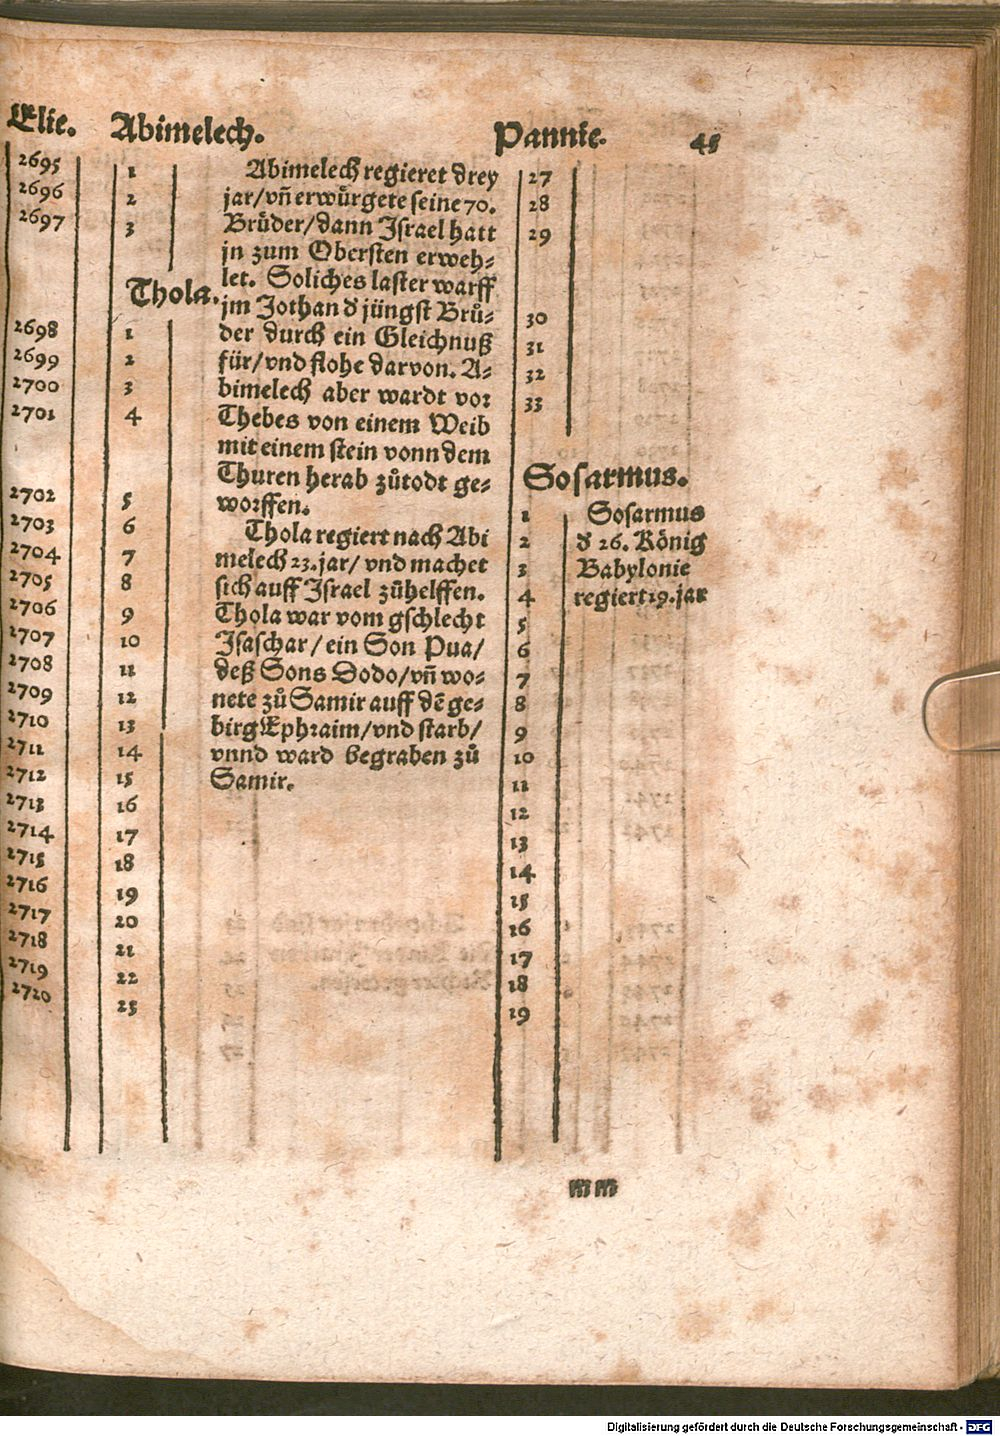 Elie. Abimelech. Pannie. 45
2695
2696
2697
2698
2699
2700
2701
2702
2703
2704
2705
2706
2707
2708
2709
2710
2711
2712
2713
2714
2715
2716
2717
2718
2719
2720
1
2
3
Thola.
1
2
3
4
5
6
7
8
9
10
11
12
13
14
15
16
17
18
19
20
21
22
23
Abimelech regieret drey
jar/vñ erwuͤrgete seine 70.
Bruͤder/dann Israel hatt
jn zum Obersten erweh-
let. Soliches laster warff
jm Jothan d' jüngst Bruͤ-
der durch ein Gleichnuß
für/vnd flohe darvon. A-
bimelech aber wardt vor
Thebes von einem Weib
mit einem stein vonn dem
Thuren herab zuͦtodt ge-
worffen.
Thola regiert nach Abi
melech 23. jar/ vnd machet
sich auff Israel zuͦhelffen.
Thola war vom gschlecht
Isaschar/ein Son Pua/
deß Sons Dodo/vñ wo-
nete zuͦ Samir auff dẽ ge-
birg Ephraim/vnd starb/
vnnd ward begraben zuͦ
Samir.
27
28
29
30
31
32
33
Sosarmus.
1
2
3
4
5
6
7
8
9
10
11
12
13
14
15
16
17
18
19
Sosarmus
d' 26. König
Babylonie
regiert 19. jar
Digitalisierung gefördert durch die Deutsche Forschungsgemeinschaft - DFG